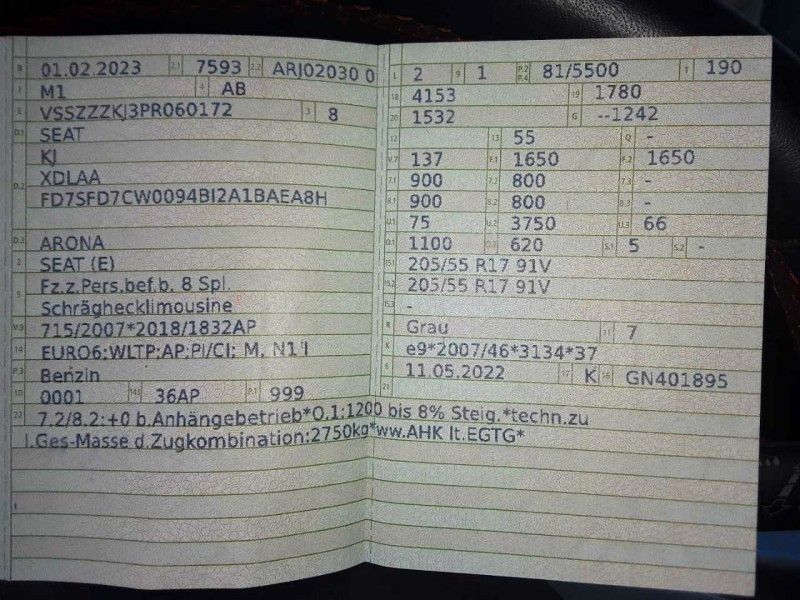 B 01.02.2023 2.1 7593 2.2 ARJ02030 0
J M1 4 AB
E VSSZZZKJ3PR060172 3 8
D.1 SEAT
KJ
D.2 XDLAA
FD7SFD7CW0094BI2A1BAEA8H
D.3 ARONA
2 SEAT (E)
5 Fz.z.Pers.bef.b. 8 Spl.
Schräghecklimousine
V.9 715/2007*2018/1832AP
14 EURO6;WLTP;AP;PI/CI; M, N1 I
P.3 Benzin
10 0001 14.1 36AP P.1 999
22 7.2/8.2:+0 b.Anhängebetrieb*O.1:1200 bis 8% Steig.*techn.zu
l.Ges-Masse d.Zugkombination:2750kg*ww.AHK lt.EGTG*
L 2 9 1 P.2 P.4 81/5500 T 190
18 4153 19 1780
20 1532 G --1242
12 13 55 Q -
V.7 137 F.1 1650 F.2 1650
7.1 900 7.2 800 7.3 -
8.1 900 8.2 800 8.3 -
U.1 75 U.2 3750 U.3 66
O.1 1100 O.2 620 S.1 5 S.2 -
15.1 205/55 R17 91V
15.2 205/55 R17 91V
15.3 -
R Grau 11 7
K e9*2007/46*3134*37
6 11.05.2022 17 K 16 GN401895
21